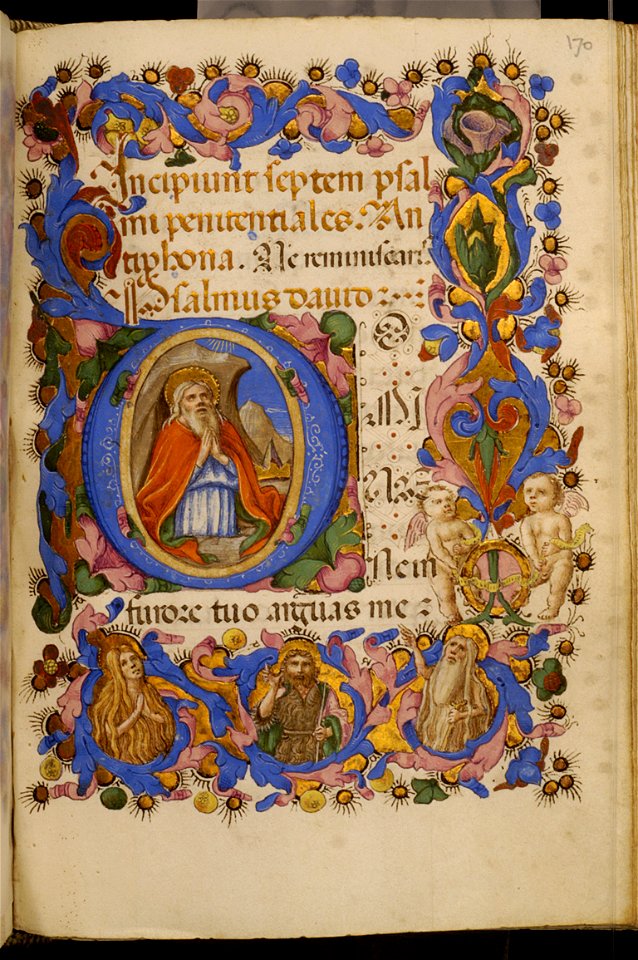 170
Incipiunt septem psal
mi penitentiales. An
tiphona. Ne reminiscaris.
Psalmus dauid
D O
MI
NE
Ne in
furore tuo arguas me